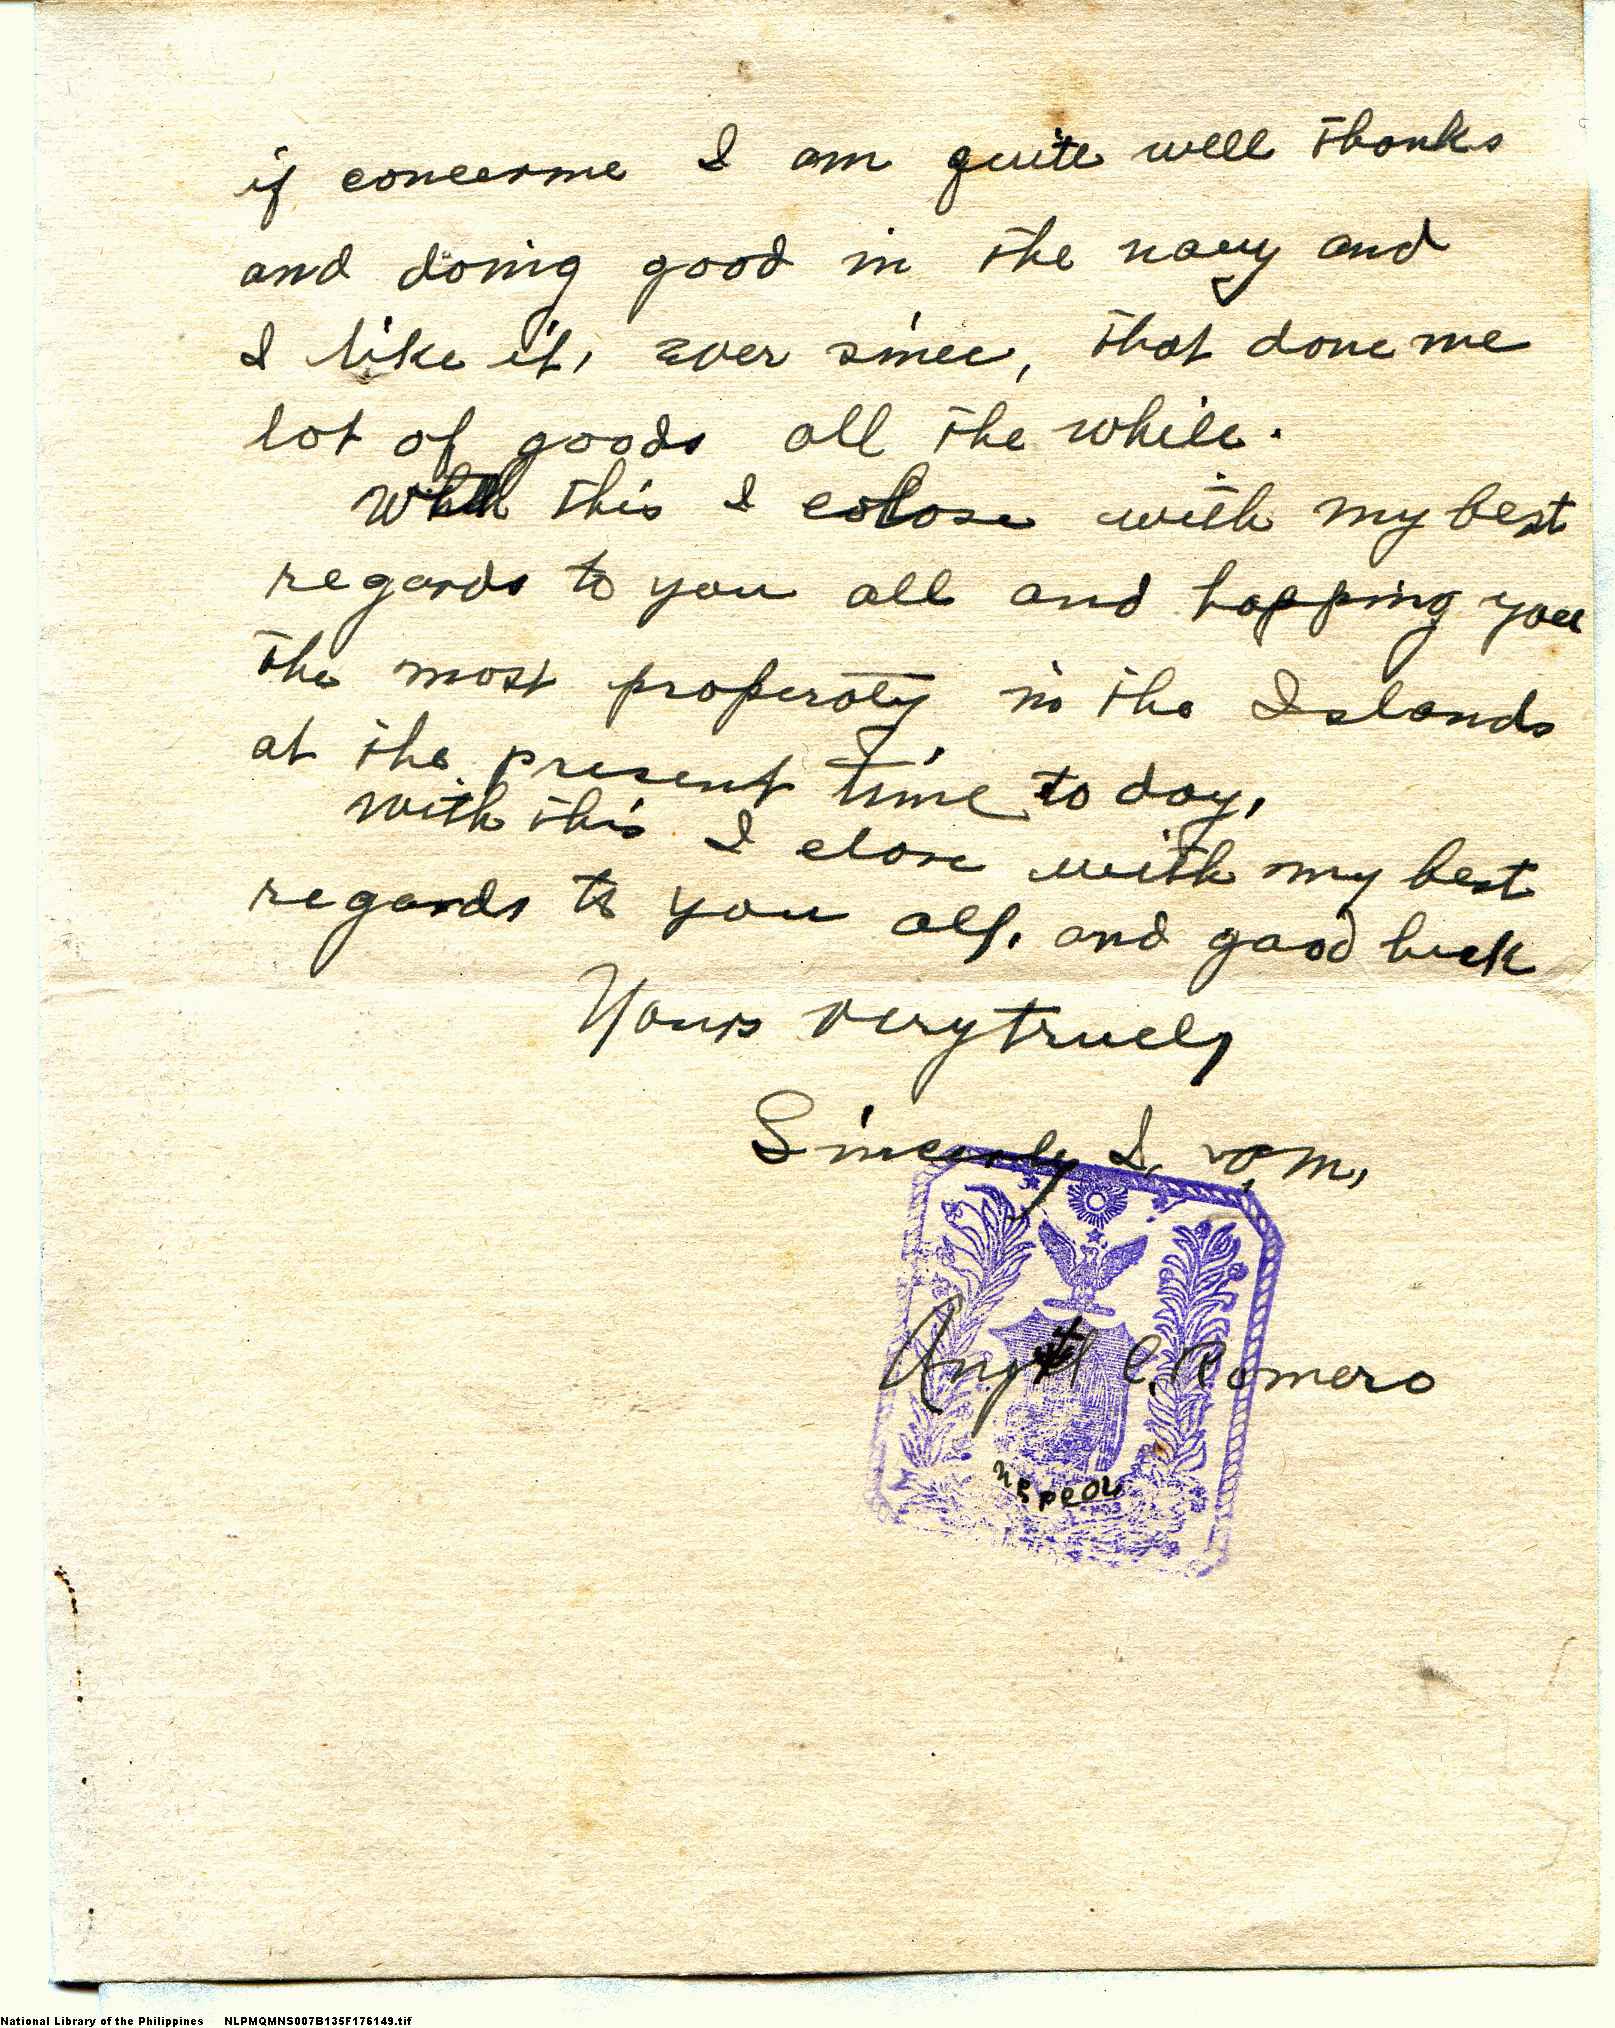 if concerme I am quite well thanks
and doing good in the navy and
I like it, ever since, that done me
lot of goods all the while.
With this I colose with my best
regards to you all and hopping you
the most properoty in the Islands
at the present time to day,
with this I close with my best
regards to you all, and good luck
Yours very truely
Sincerly I,
Angel C. Romero
National Library of the Philippines NLPMQMNS007B135F176149.tif